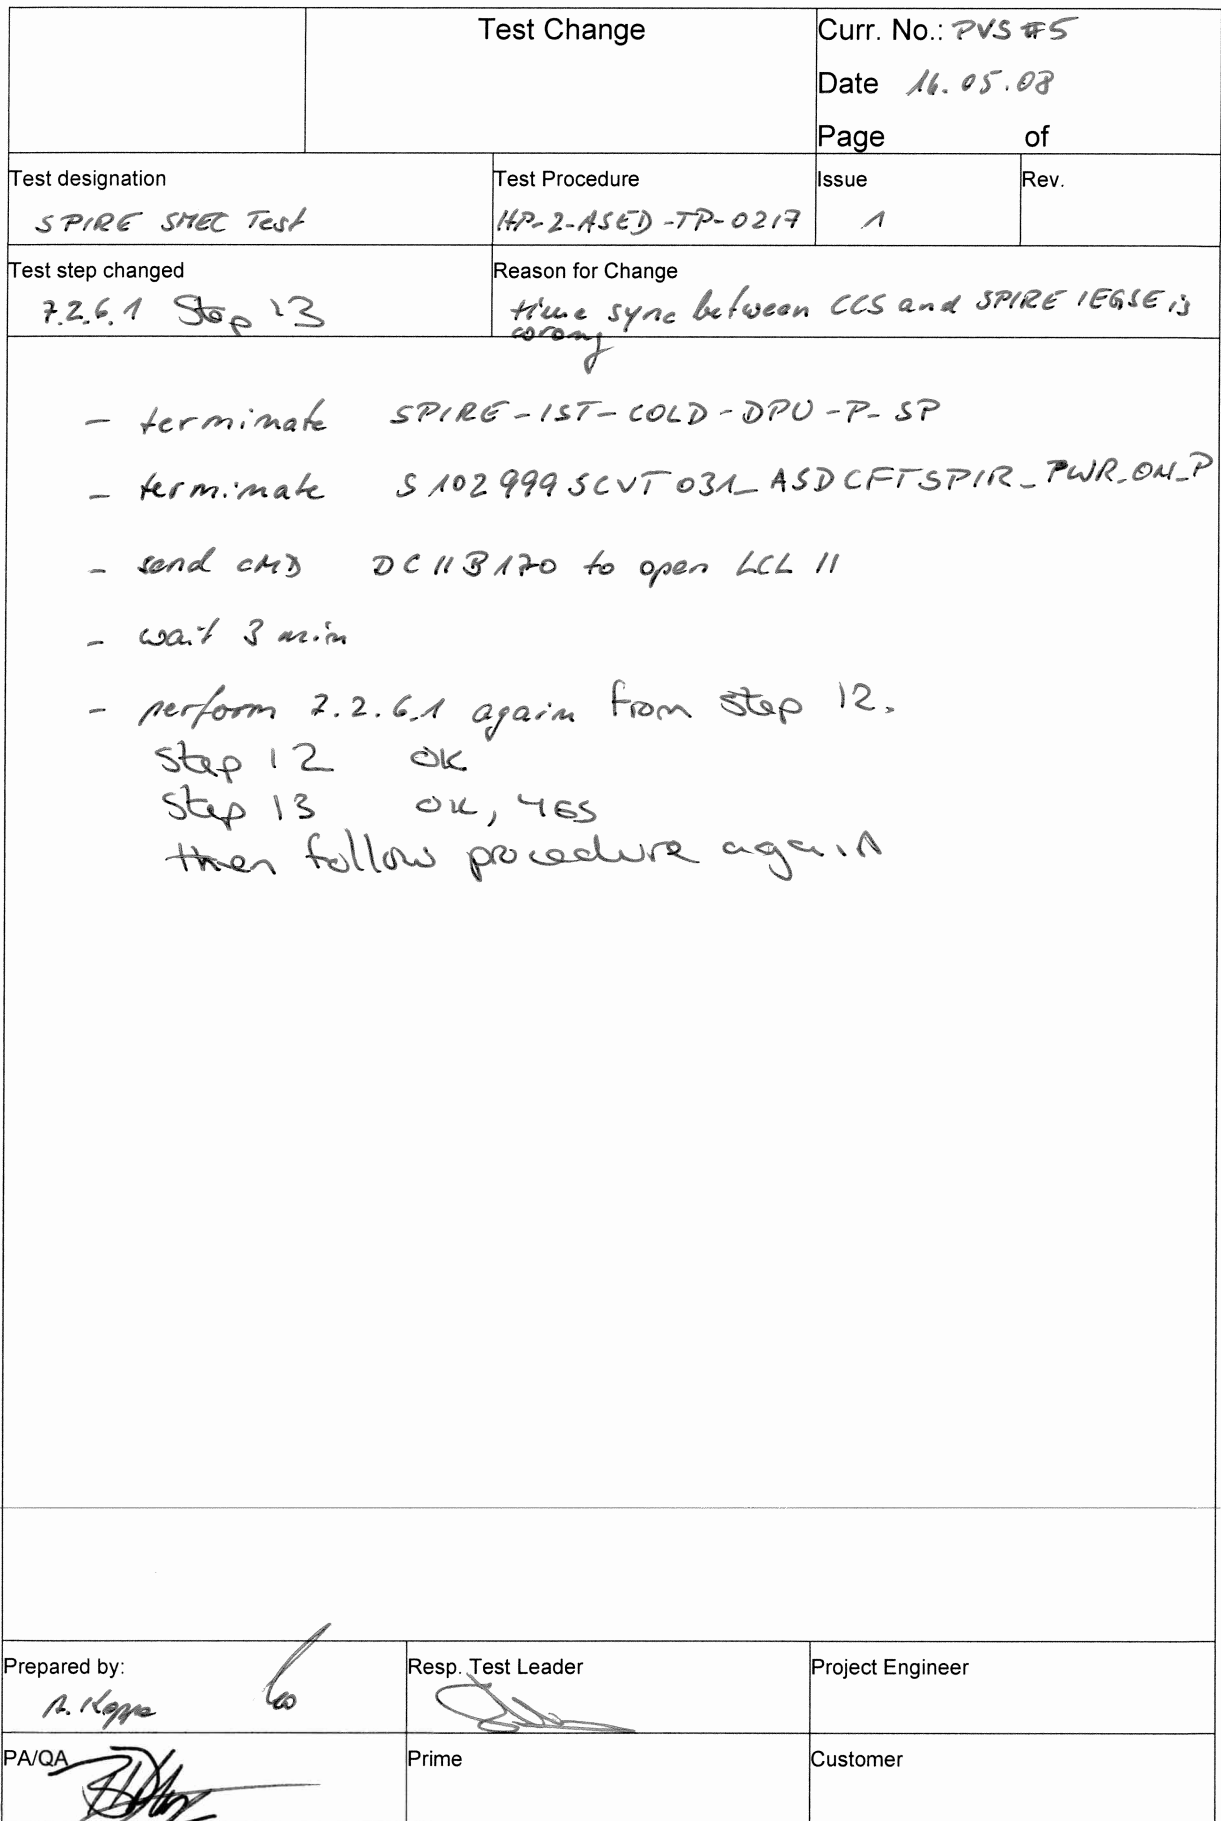 Test Change
Curr. No.: PVS #5
Date 16.05.08
Page of
Test designation
SPIRE SMEC Test
Test Procedure
HP-2-ASED-TP-0217
Issue
1
Rev.
Test step changed
7.2.6.1 Step 13
Reason for Change
time sync between CCS and SPIRE IEGSE is
wrong
- terminate SPIRE-IST-COLD-DPU-P-SP
- terminate S102999SCVT031_ASDCFTSPIR_PWR_ON_P
- send CMD DC11B170 to open LCL 11
- wait 3 min
- perform 7.2.6.1 again from step 12.
Step 12 OK
Step 13 OK, YES
then follow procedure again
Prepared by:
Resp. Test Leader
Project Engineer
PA/QA
Prime
Customer